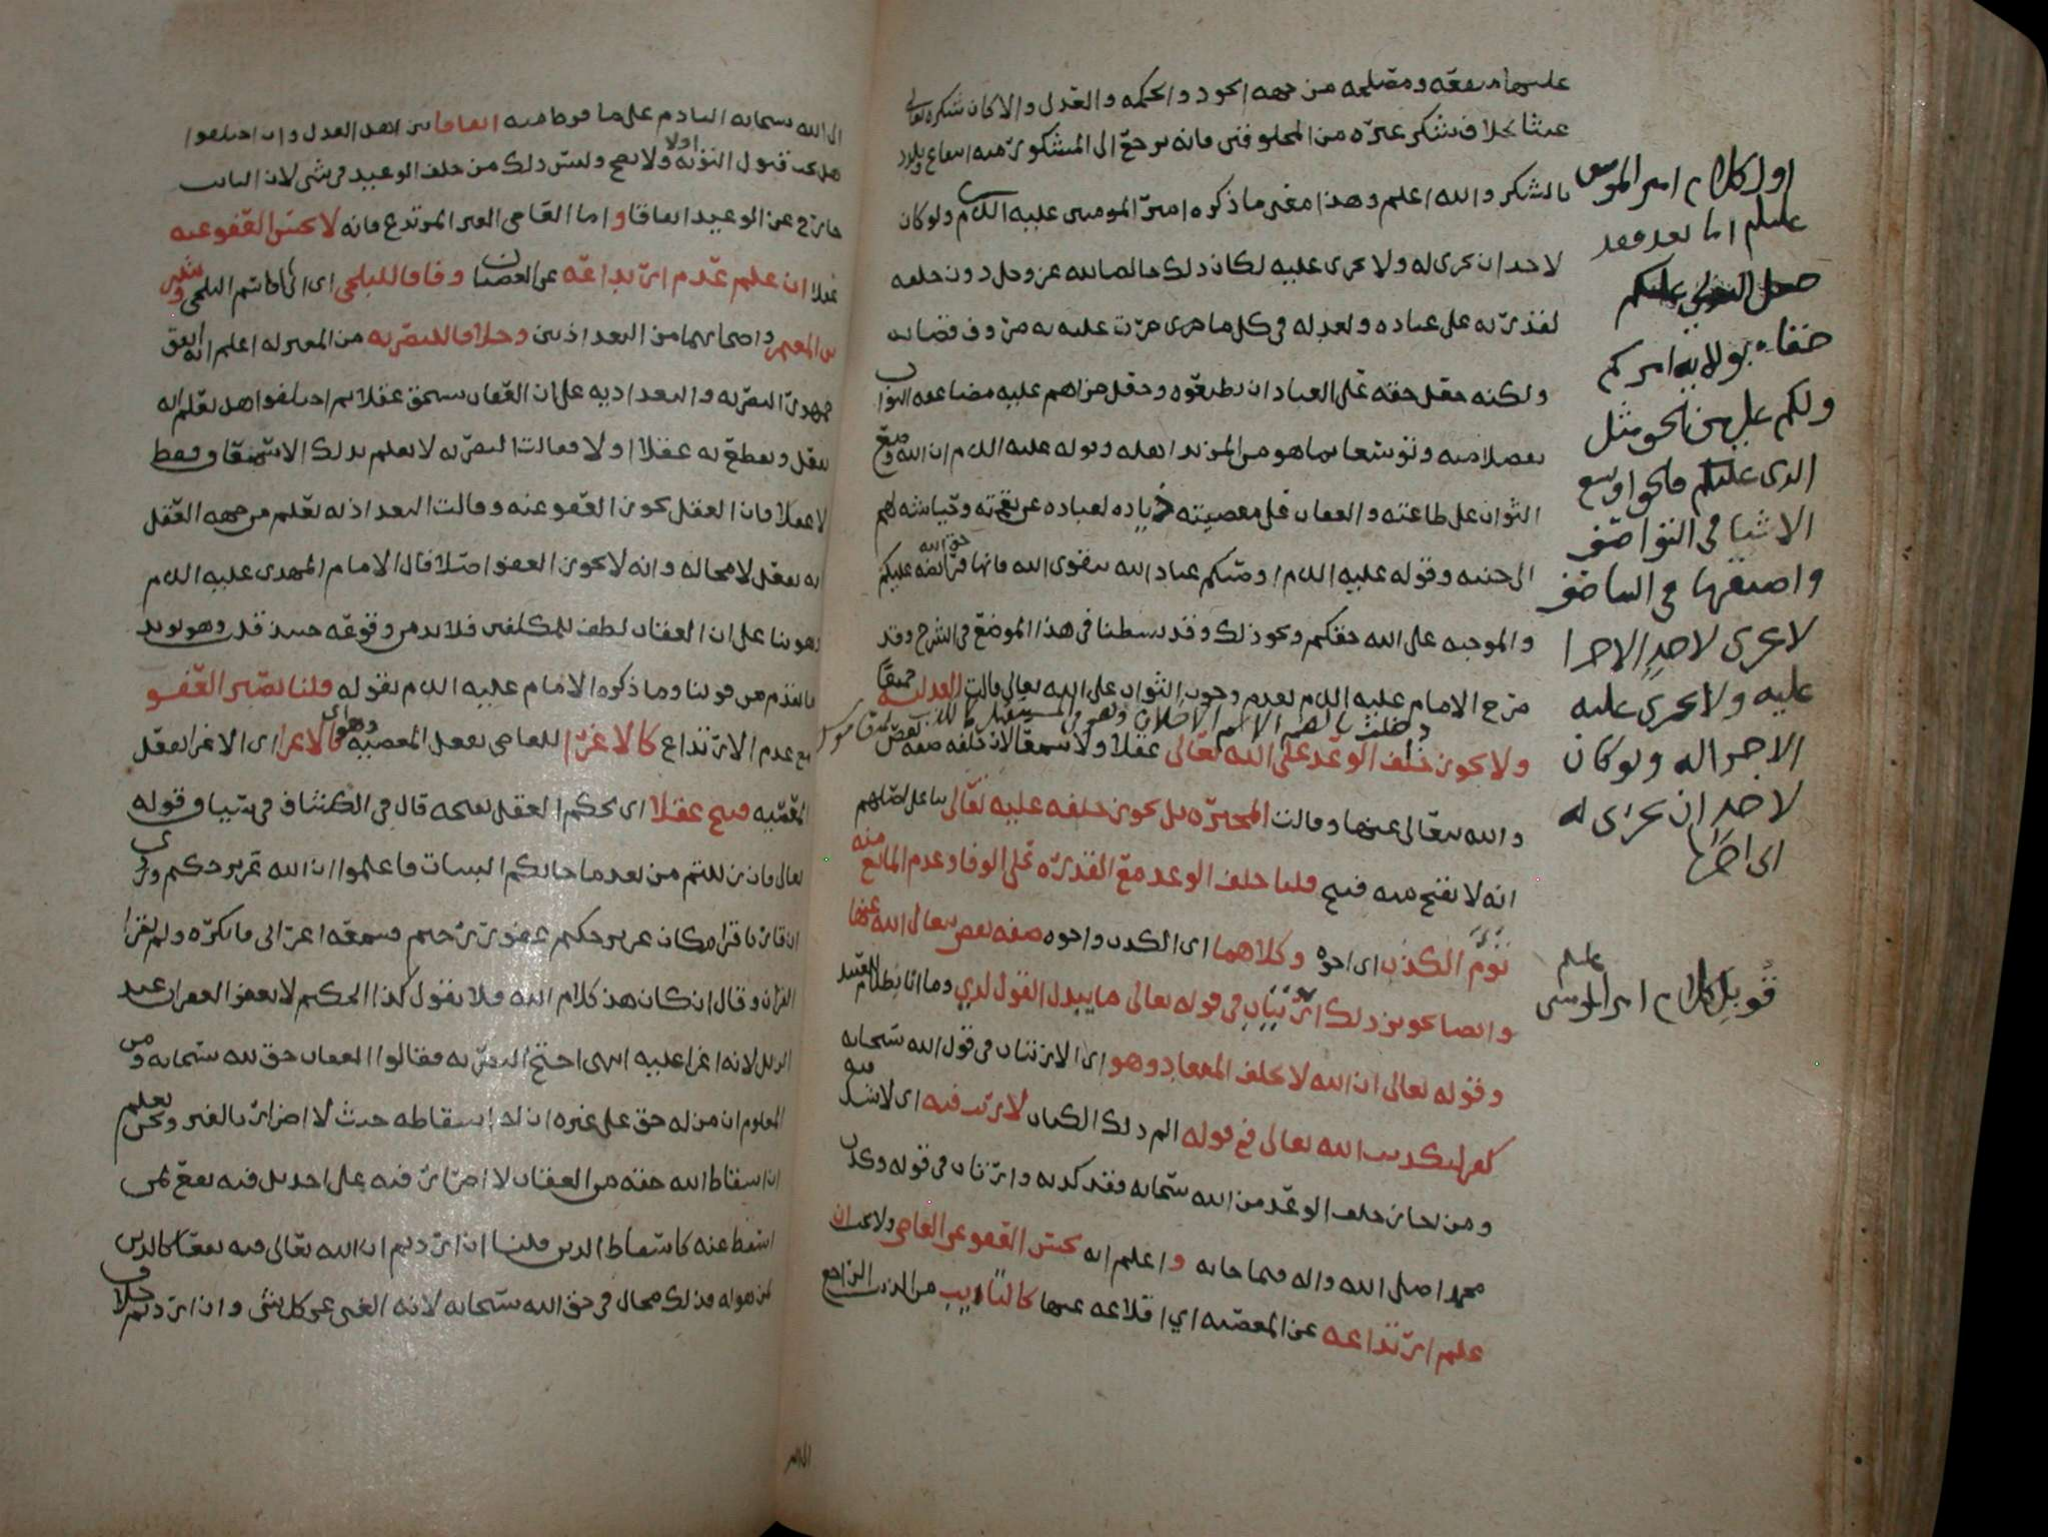 عليها منفعه ومصلحه من جهه الجود والحكمه والعدل والا كان شكره تعالى
عبثا بخلاف شكر غيره من المخلوقين فانه يرجع الى المشكور منه انتفاع
بالشكر والله اعلم وهذا معنى ما ذكره امير المومنين عليه السلام ولو كان
لاحد ان يجري له ولا يجري عليه لكان ذلك خالصا لله عز وجل دون خلقه
لقدرته على عباده ولعدله في كل ما جرت عليه به صروف قضايه
ولكنه جعل حقه على العباد ان يطيعوه وجعل جزاهم عليه مضاعفه الثواب
تفضلا منه وتوسعا بما هو من المزيد اهله وقوله عليه السلام ان الله وضع
الثواب على طاعته والعقاب على معصيته ذياده لعباده عن نقمته وحياشه لهم
الى جنته وقوله عليه السلام اوصيكم عباد الله بتقوى الله فانها حق الله عليكم
والموجبه على الله حقكم ونحو ذلك وقد بسطنا في هذا الموضع في الشرح وقد
صرح الامام عليه السلام بعدم وجوب الثواب على الله تعالى قالت العدليه جميعا
ولا يجوز خلف الوعد على الله تعالى عقلا ولا سمعا لان خلفه صفه نقص
والله يتعالى عنها وقالت المجبره بل يجوز خلفه عليه تعالى بنا على اصلهم
انه لا يقبح منه قبيح قلنا خلف الوعد مع القدره على الوفا وعدم المانع منه
توم الكذب اي اخوه وكلاهما اي الكذب واخوه صفه نقص يتعالى الله عنها
وايضا تجويز ذلك ارتياب في قوله تعالى ما يبدل القول لدي وما انا بظلام للعبيد
وقوله تعالى ان الله لا يخلف الميعاد وهو اي الارتياب في قول الله سبحانه
كفر لتكذيب الله تعالى في قوله الم ذلك الكتاب لا ريب فيه اي لا شك فيه
ومن اجاز خلف الوعد من الله سبحانه فقد كذبه وارتاب في قوله وكذب
محمدا صلى الله واله فيما جا به واعلم انه يحسن العفو عن العاصي ولا يجب ان
علم ارتداعه عن المعصيه اي اقلاعه عنها كالتايب من الذنب الراجع
اول كلام امير المومنين
عليلم اما بعد فقد
جعل الله لي عليكم
حقا بولايه امركم
ولكم علي من الحق مثل
الذي عليكم فالحق اوسع
الاشيا في التواصف
واضيقها في التناصف
لا يجري لاحد الا جرا
عليه ولا يجري عليه
الا جرا له ولو كان
لاحد ان يجري له
الى اخرها
عليلم
قوبل كلام امير المومنين
الى الله سبحانه النادم على ما فرط منه اتفاقا بين اهل العدل وان اختلفوا
هل يجب قبول التوبه اولا ولا يصح وليس ذلك من خلف الوعيد في شي لان التايب
خارج عن الوعيد اتفاقا واما العاصي الغير المرتدع فانه لا يحسن العفو عنه
عقلا ان علم عدم ارتداعه عن العصيان وفاقا للبلخي اي ابي القاسم البلخي وبشر
بن المعتمر واصحابهما من البغداذيين وخلافا للبصريه من المعتزله اعلم انه اتفق
جمهور البصريه والبغداديه على ان العقاب يستحق عقلا ثم اختلفوا هل يعلم انه
يفعل ويقطع به عقلا اولا فقالت البصريه لا يعلم بذلك الا سمعا فقط
لا عقلا فان العقل يجوز العفو عنه وقالت البغداذيه يعلم من جهه العقل
انه يفعل لا محاله وانه لا يجوز العفو اصلا قال الامام المهدي عليه السلام
وهو بنا على ان العقاب لطف للمكلفين فلا بد من وقوعه
ما تقدم من قولنا وما ذكره الامام عليه السلام بقوله قلنا يصير العفو
مع عدم الارتداع كالاغرا للعاصي بفعل المعصيه والاغرا اي الاغرا بفعل
المعصيه قبيح عقلا اي يحكم العقل بقبحه قال في الكشاف في سياق قوله
تعالى فان زللتم من بعد ما جاتكم البينات فاعلموا ان الله عزيز حكيم وروي
ان قاريا قرا مكان عزيز حكيم غفور رحيم فسمعه اعرابي فانكره ولم يقرا
القران وقال ان كان هذا كلام الله فلا يقول كذا الحكيم لا يذكر الغفران عند
الزلل لانه اغرا عليه انتهى احتج البصريه فقالوا العقاب حق لله سبحانه ومن
المعلوم ان من له حق على غيره ان له اسقاطه حيث لا اضرار بالغير ونحن نعلم
ان اسقاط الله حقه من العقاب لا اضرار فيه على احد بل فيه نفع لمن
اسقط عنه كاسقاط الدين قلنا ان اردتم ان الله تعالى فيه نفعا كالدين
لمن هو له فذلك محال في حق الله سبحانه لانه الغني عن كل شي وان اردتم خلاف